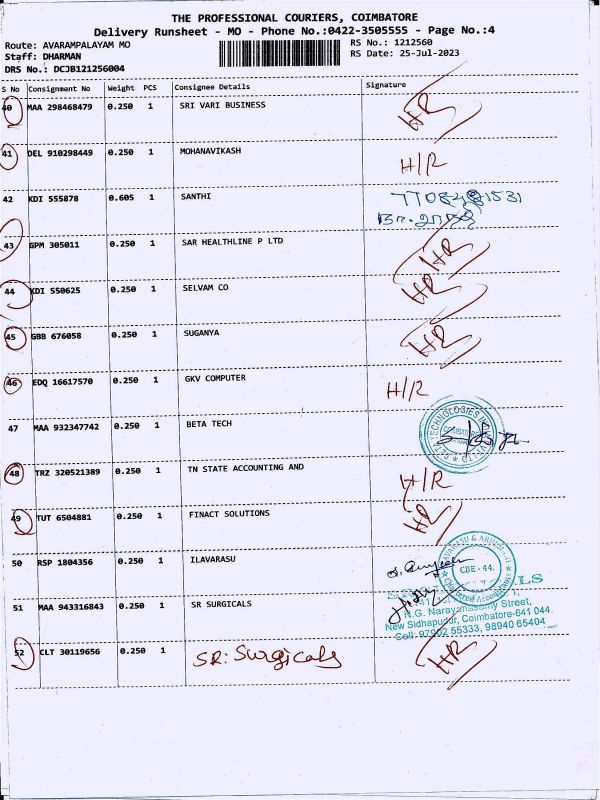 THE PROFESSIONAL COURIERS, COIMBATORE
Delivery Runsheet - MO - Phone No.:0422-3505555 - Page No.:4
Route: AVARAMPALAYAM MO
RS No.: 1212560
Staff: DHARMAN
RS Date: 25-Jul-2023
DRS No.: DCJB121256004
S No Consignment No Weight PCS Consignee Details Signature
40 MAA 298468479 0.250 1 SRI VARI BUSINESS HR
41 DEL 910298449 0.250 1 MOHANAVIKASH H/R
42 KDI 555878 0.605 1 SANTHI
43 GPM 305011 0.250 1 SAR HEALTHLINE P LTD HR
44 KDI 550625 0.250 1 SELVAM CO HR
45 GBB 676058 0.250 1 SUGANYA HR
46 EDQ 16617570 0.250 1 GKV COMPUTER H/R
47 MAA 932347742 0.250 1 BETA TECH
48 TRZ 320521389 0.250 1 TN STATE ACCOUNTING AND H/R
49 TUT 6504881 0.250 1 FINACT SOLUTIONS HR
50 RSP 1804356 0.250 1 ILAVARASU
CBE - 44.
Chartered Accountants
51 MAA 943316843 0.250 1 SR SURGICALS
N.G. Narayanasamy Street,
New Sidhapudur, Coimbatore-641 044.
Cell: 97902 55333, 98940 65404
52 CLT 30119656 0.250 1 SR: Surgicals HR